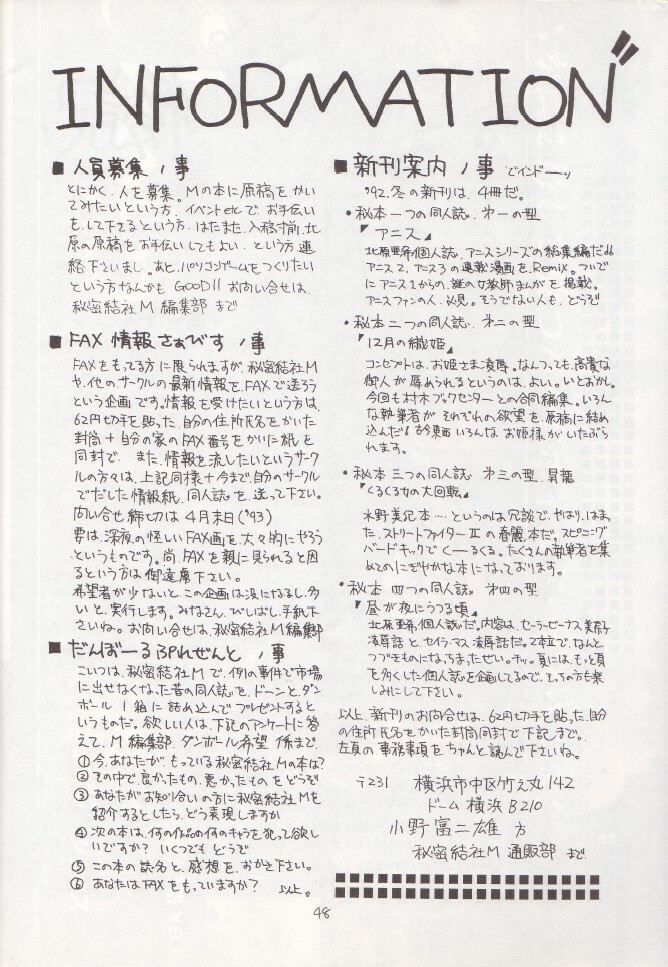 INFORMATION"
■人員募集ノ事
とにかく、人を募集。Mの本に原稿をかい
てみたいという方、イベントetcで、お手伝い
をして下さるという方、はたまた、入稿寸前、北
原の原稿をお手伝いしてもよい、という方、連
絡下さいまし。あと、パソコンゲームをつくりたい
という方なんかもGOOD!! お向い合せは、
秘密結社M編集部まで
■FAX情報さぁびすノ事
FAXをもってる方に限られますが、秘密結社M
や、他のサークルの最新情報を、FAXで送ろう
という企画です。情報を受けたいという方は、
62円切手を貼った、自分の住所氏名をかいた
封筒+自分の家のFAX番号をかいた紙を
同封で、また、情報を流したいというサーク
ルの方々は、上記同様+今まで、自分のサークル
でだした情報紙、同人誌を、送って下さい。
向い合せ締切は4月末日('93)
要は、深夜の怪しいFAX画を大々的にやろう
というものです。尚、FAXを親に見られると困
るという方は御遠慮下さい。
希望者が少ないと、この企画は没になるし、多
いと、実行します。みなさん、びしばし、手紙下
さいね。お向い合せは、秘密結社M編集部
■だんぼーるぷれぜんとノ事
こいつは、秘密結社Mで、例の事件で市場
に出せなくなった昔の同人誌を、ドーンと、ダン
ボール1箱に詰め込んでプレゼントすると
いうものだ。欲しい人は、下記のアンケートに答
えて、M編集部 ダンボール希望 係まで。
①今、あなたが、もっている秘密結社Mの本は?
②その中で、良かったもの、悪かったものをどうぞ
③あなたがお知り合いの方に秘密結社Mを
紹介するとしたら、どう表現しますか
④次の本は、何の作品の何のキャラを犯って欲し
いですか? いくつでもどうぞ
⑤この本の誌名と、感想を、おかき下さい。
⑥あなたはFAXをもっていますか? 以上。
■新刊案内ノ事 でインドーッ
'92.冬の新刊は、4冊だ。
・秘本一つの同人誌、第一の型
「アニス」
北原亜希個人誌、アニスシリーズの総集編だ。
アニス2、アニス3の連載漫画を、Remix。ついで
にアニス1からの、謎の女教師まんがを掲載。
アニスファンの人、必見。そうでない人も、どうぞ
・秘本二つの同人誌、第二の型
「12月の織姫」
コンセプトは、お姫さま凌辱。なんつっても、高貴な
御人が辱められるというのは、よい。いとおかし。
今回も村木ブックセンターとの合同編集。いろん
な執筆者が、それぞれの欲望を、原稿に結め
込んだ! 古今東西いろんなお姫様がいたぶら
れます。
・秘本三つの同人誌 第三の型、昇龍
「くるくる女の大回転」
水野美紀本‥‥というのは冗談で、やはり、はま
った、ストリートファイターIIの春麗本だ。スピニング
バードキックでくーるくる。たくさんの執筆者を集
めてのにぎやかな本になっております。
・秘本四つの同人誌 第四の型
「昼が夜にうつる頃」
北原亜希個人誌だ。内容は、セーラービーナス美奈子
凌辱話と、セイラ・マス凌辱話だ。2本立で、なんと
つづきものになっちまったぜい。ホッ。夏には、もっと頁
を多くした個人誌を企画してるので、そっちの方も楽
しみにして下さい。
以上、新刊のお向合せは、62円切手を貼った、自分
の住所氏名をかいた封筒同封で下記まで。
左頁の事務事項をちゃんと読んで下さいね。
〒231 横浜市中区竹之丸142
ドーム横浜B210
小野富二雄 方
秘密結社M 通販部 まで
48